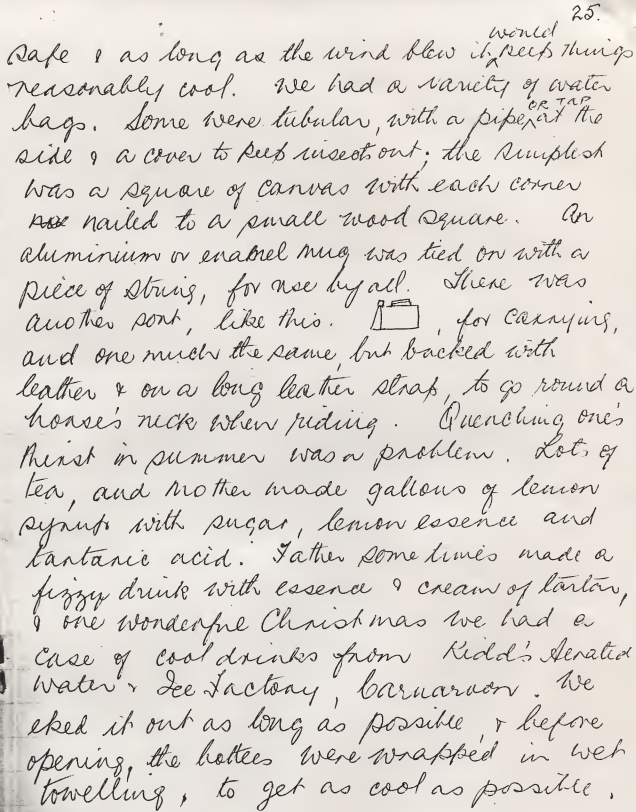 25.
safe & as long as the wind blew it would keep things
reasonably cool. We had a variety of water
bags. Some were tubular, with a pipe OR TAP at the
side & a cover to keep insects out; the simplest
was a square of canvas with each corner
nailed to a small wood square. An
aluminium or enamel mug was tied on with a
piece of string, for use by all. There was
another sort, like this. , for carrying,
and one much the same, but backed with
leather & on a long leather strap, to go round a
horse's neck when riding. Quenching one's
thirst in summer was a problem. Lots of
tea, and Mother made gallons of lemon
syrup with sugar, lemon essence and
tartaric acid. Father sometimes made a
fizzy drink with essence & cream of tartar,
& one wonderful Christmas we had a
case of cool drinks from Kidd's Aerated
Water & Ice Factory, Carnarvon. We
eked it out as long as possible, & before
opening, the bottles were wrapped in wet
towelling, to get as cool as possible.